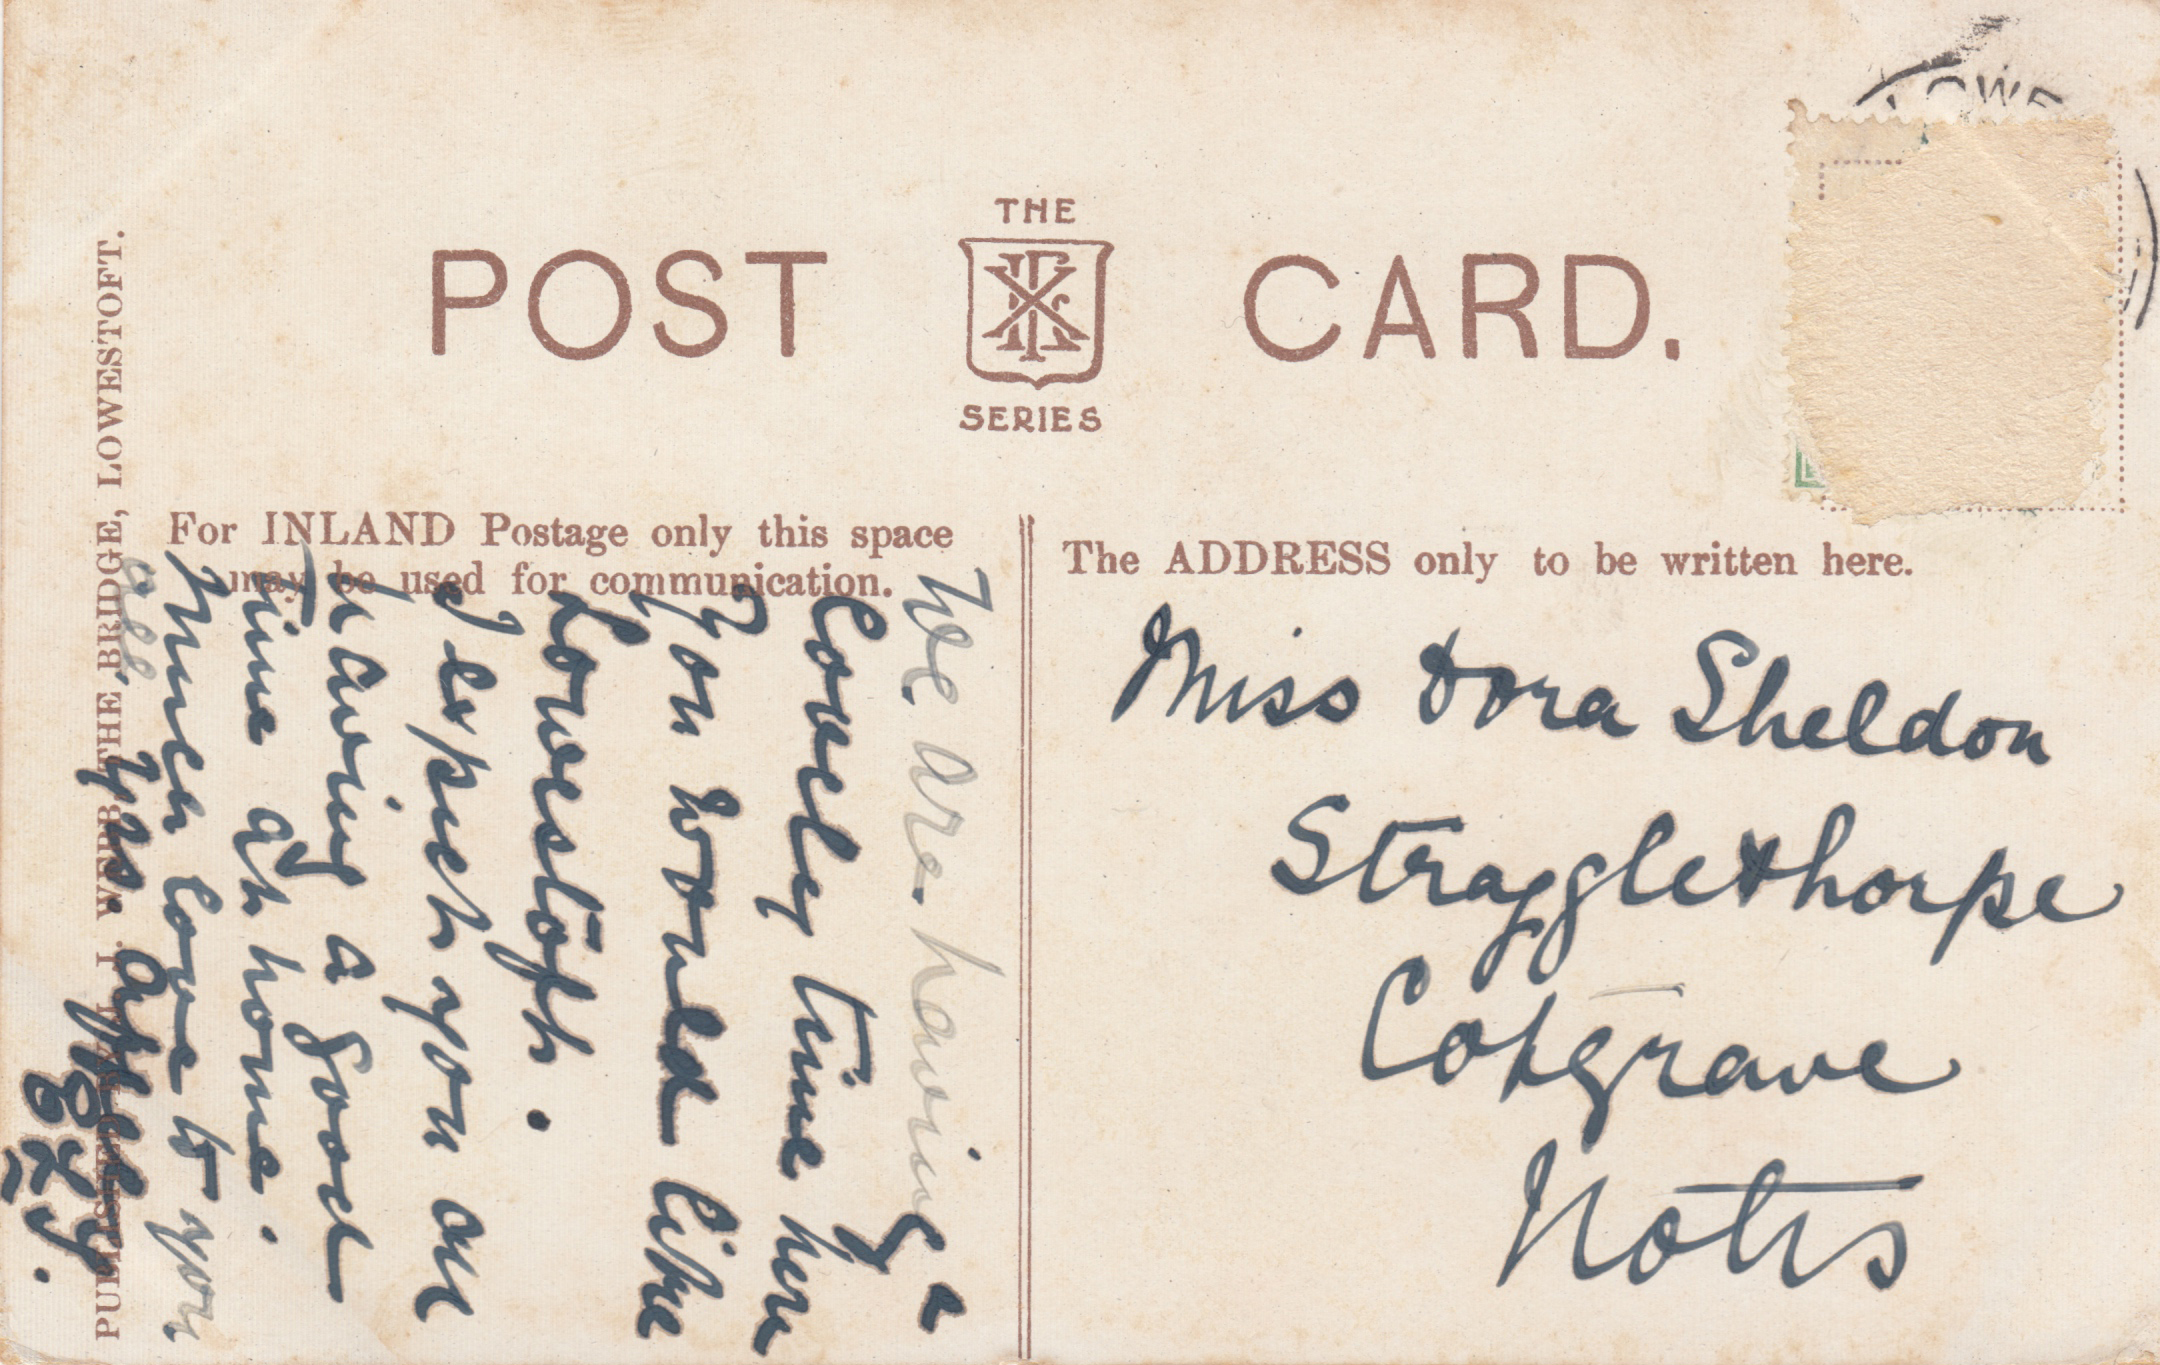 THE
POST CARD.
SERIES
LOWE
PUBLISHED BY J. WEBB, THE BRIDGE, LOWESTOFT.
For INLAND Postage only this space
may be used for communication.
The ADDRESS only to be written here.
We are having a
lovely time here
you would like
Lowestoft.
I expect you are
having a good
time at home.
Much love to you
all. yrs.
Miss Dora Sheldon
Stragglethorpe
Cotgrave
Notts